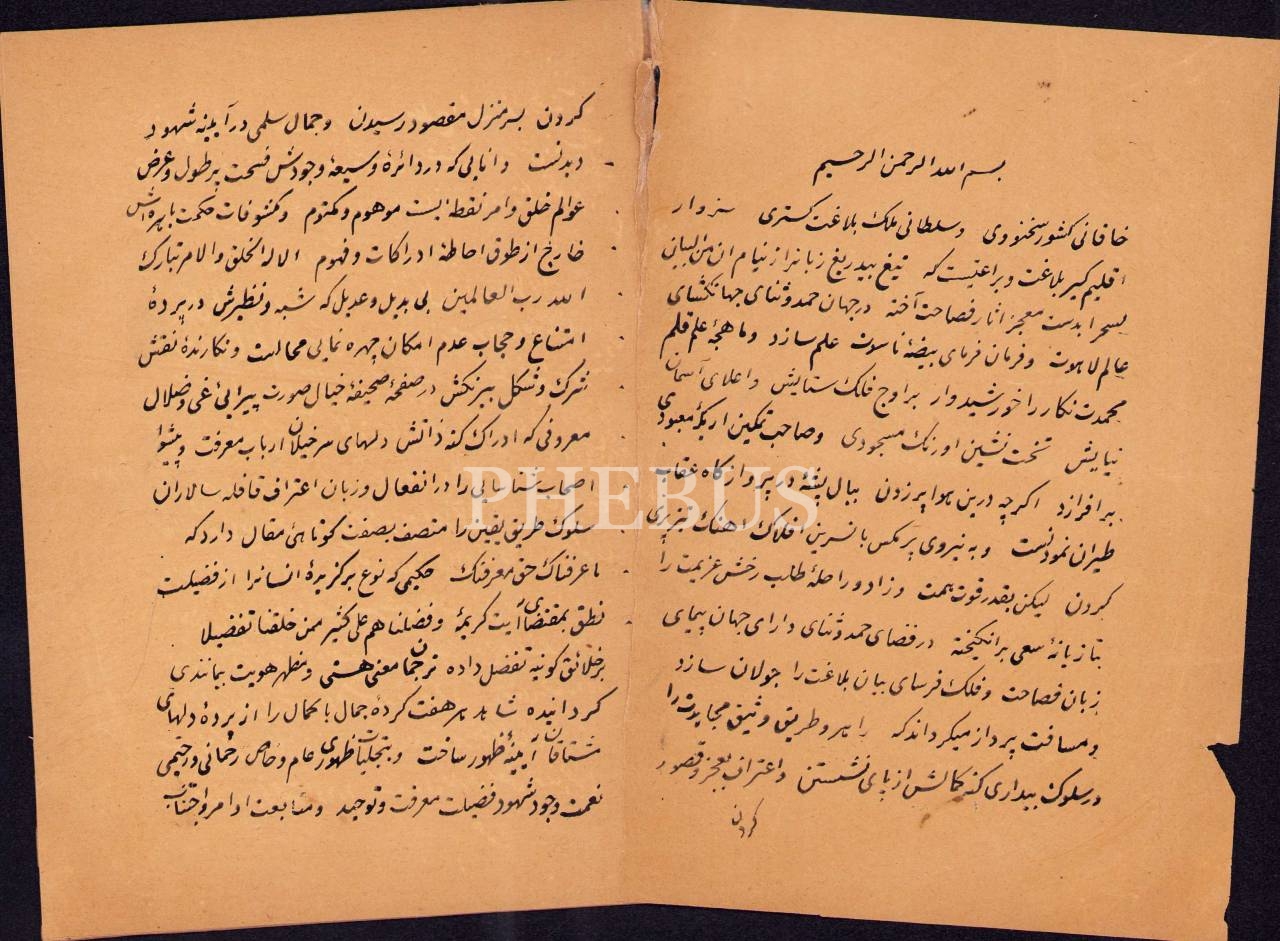 بسم الله الرحمن الرحیم
خاقانی کشور سخنوری و سلطانی ملک بلاغت کستری سزوار
اقلیم کیر بلاغت و براعتیست که تیغ بیدریغ زبانرا از نیام ان من البیان
لسحرا بدست معجز اثار فصاحت آخته در جهان حمد و ثنای جهانکشای
عالم لاهوت و فرمان فرمای بیضهٔ ناسوت علم سازد و ماهجهٔ علم قلم
محمدت نکار را خورشیدوار بر اوج فلک ستایش و اعلای آسمان
نیایش تخت نشین اورنک مسجودی و صاحب تمکین اریکهٔ معبودی
بر افرازد اکرچه درین هوا پر زدن ببال پشهٔ در پروازکاه عقاب
طیران نمودنست و به نیروی پر مکس با نسرین افلاک اهنک
کردن لیکن بقدر قوت همت و زاد و راحلهٔ طلب رخش عزیمت را
بتازیانهٔ سعی برانکیخته در فضای حمد و ثنای دارای جهان پیمای
زبان فصاحت و فلک فرسای بیان بلاغت را جولان سازد
و مسافت پرداز میکرداند که راهرو طریق وثیق مجاهدت را
در سلوک بیدای کنه کمالش از پای نشستن و اعتراف بعجز و قصور
کردن
کردن بسر منزل مقصود رسیدن و جمال سلمی در آیینهٔ شهود
دیدنست دانایی که در دائرهٔ وسیعهٔ وجودش فسحت پر طول و عرض
عوالم خلق و امر نقطه ایست موهوم و مکتوم و مکشوفات حکمت باهره اش
خارج از طوق احاطهٔ ادراکات و فهوم الا له الخلق والامر تبارک
الله رب العالمین بی بدیل و عدیل که شبه و نظیرش در پردهٔ
امتناع و حجاب عدم امکان چهره نمایی محالست و نکارندهٔ نقش
شرک و شکل بیرنکش در صفحهٔ صحیفهٔ خیال صورت پیرایی غی و ضلال
معروفی که ادراک کنه ذاتش دلهای سرخیلان ارباب معرفت و پیشوا
اصحاب شناسایی را در انفعال و زبان اعتراف قافله سالاران
سلوک طریق یقین را متصف بصفت کوتاهئ مقال دارد که
ما عرفناک حق معرفتک حکیمی که نوع برکزیدهٔ انسانرا از فضیلت
نطق بمقتضای آیت کریمهٔ و فضلناهم علی کثیر ممن خلقنا تفضیلا
بر خلائق کونیه تفضل داده ترجمان معنی هستی و مظهر هویت بیمانندی
کردانیده شاهد هر هفت کردهٔ جمال با کمال را از پردهٔ دلهای
مشتاقان آیینهٔ ظهور ساخت و بتجلیات ظهوری عام و خاص رحمانی و رحیمی
نعمت وجود شهود فضیلت معرفت و توحید و متابعت اوامر و اجتناب
PHEBUS